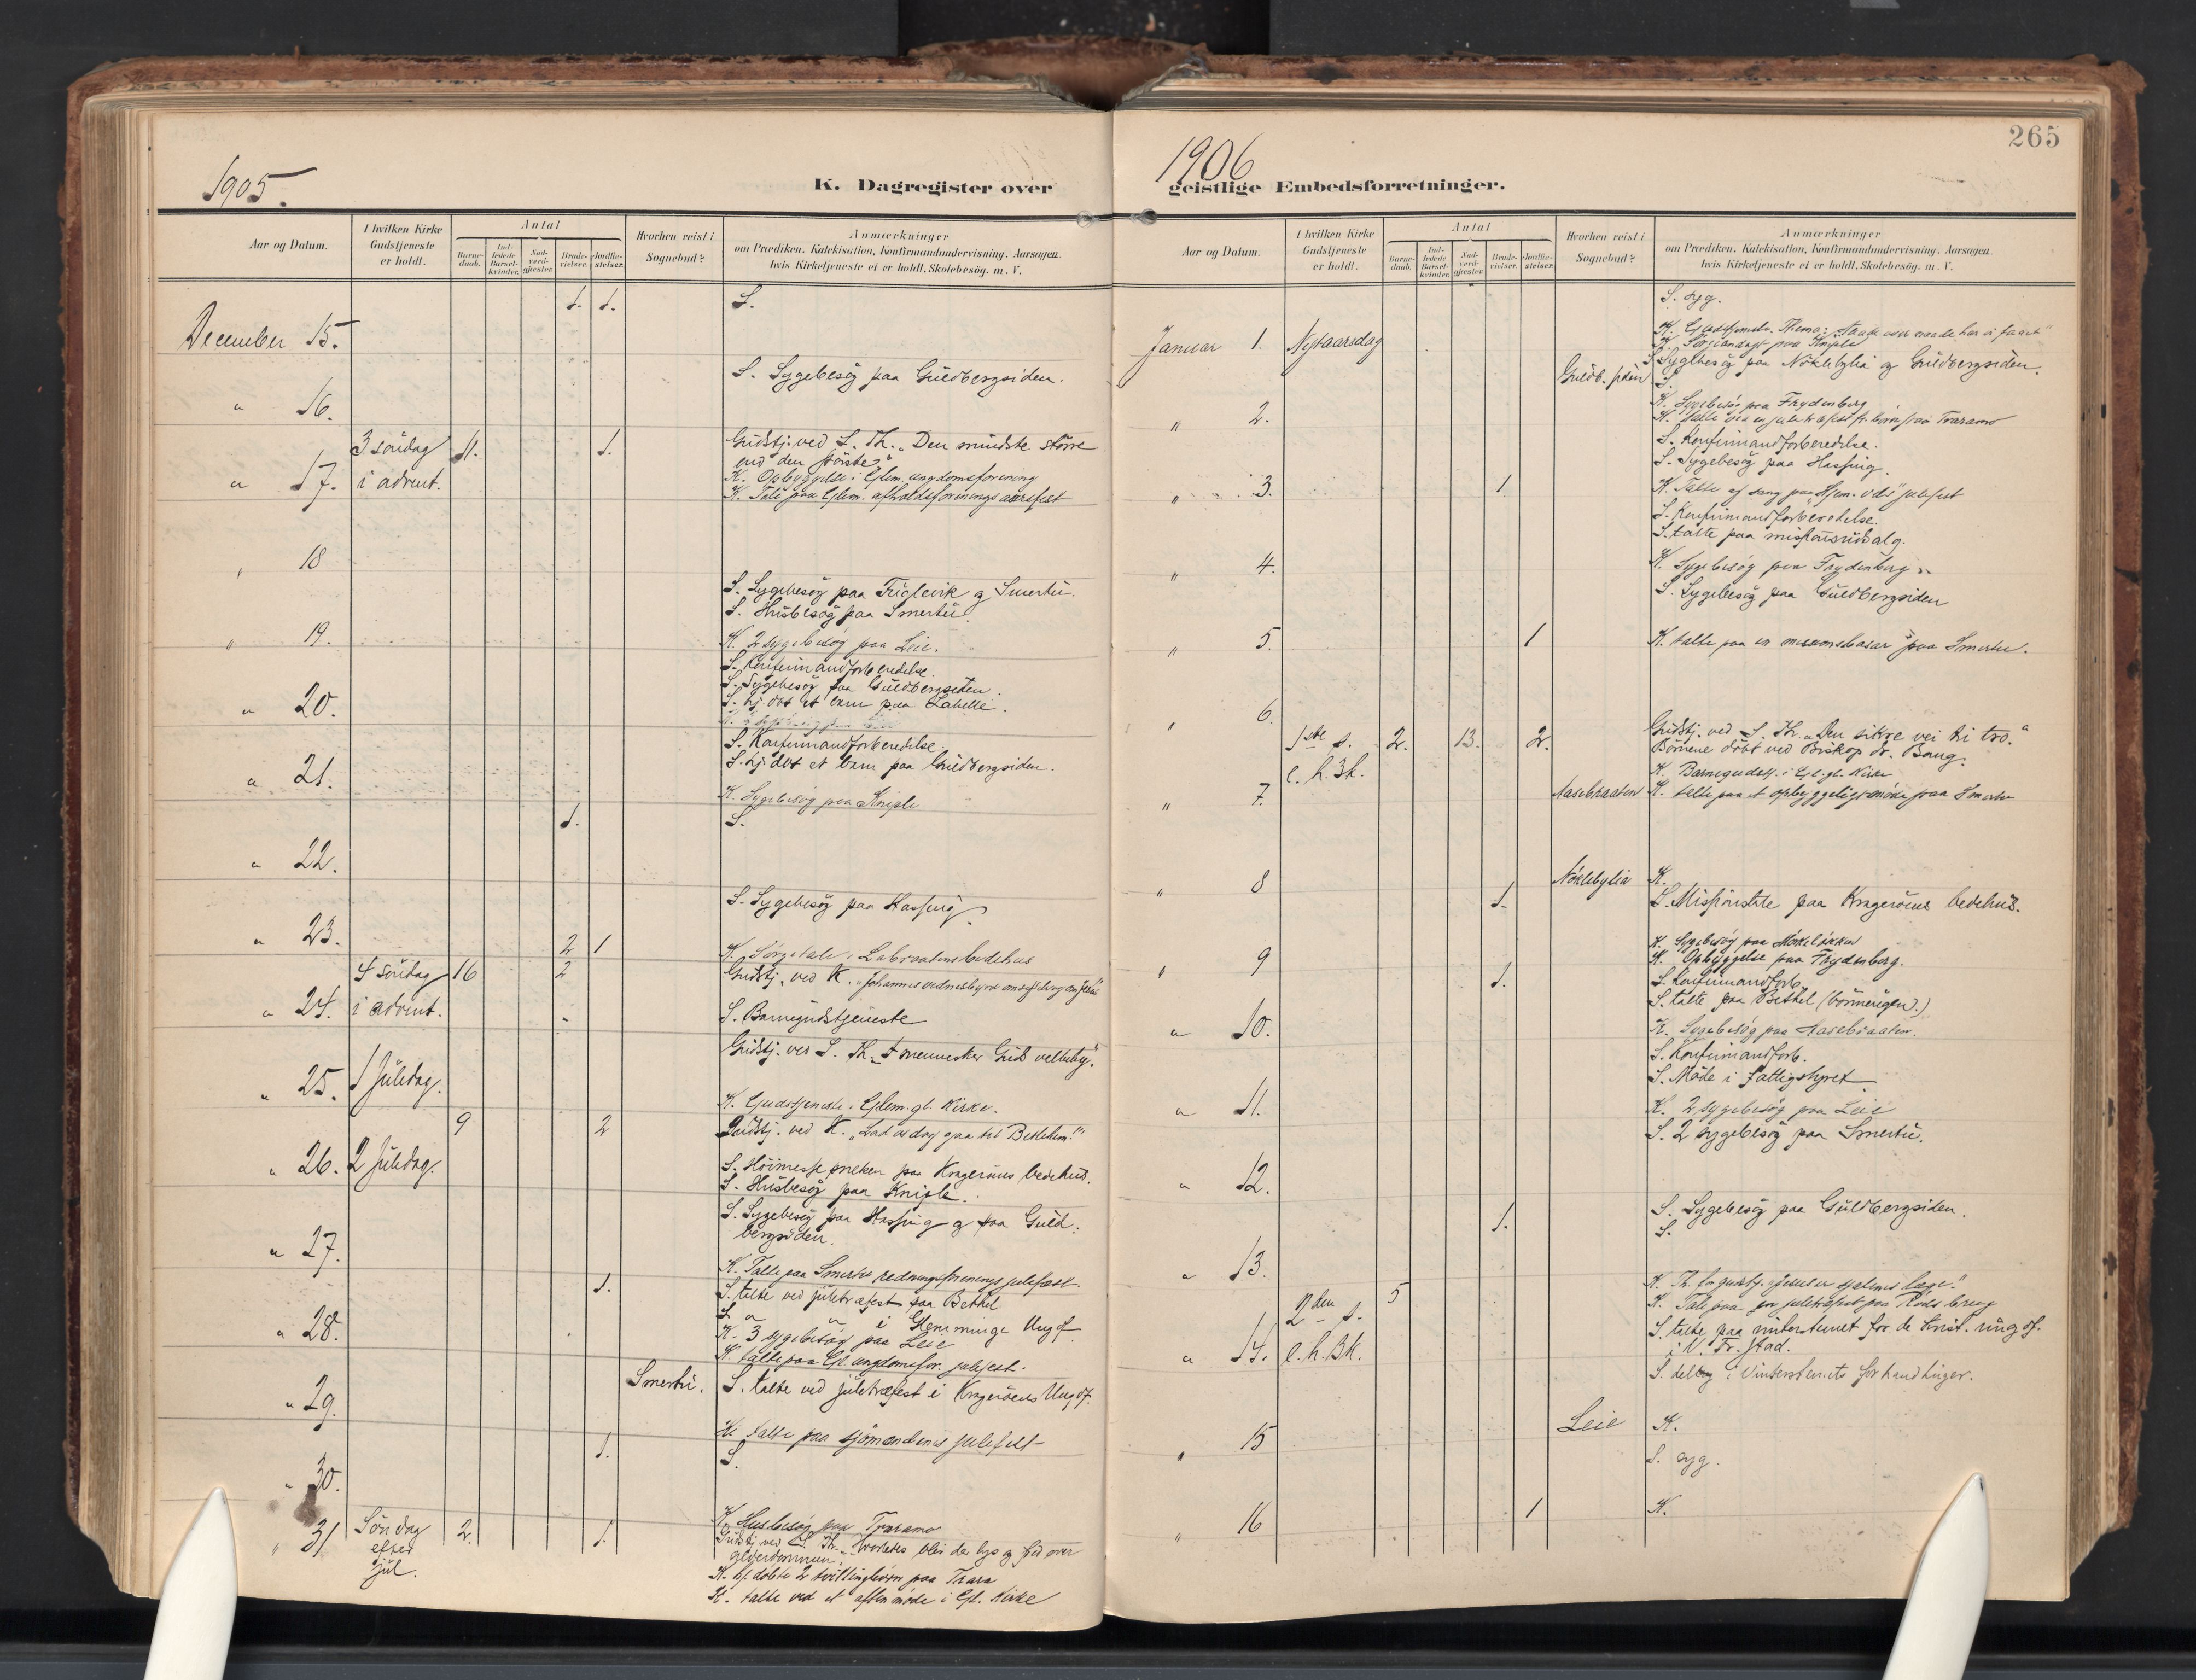 1905.
K. Dagregister over
Aar og Datum.
I hvilken Kirke Gudstjeneste er holdt.
Antal
Barne-daab.
Ind-ledede Barsel-kvinder.
Nad-verd-gjester.
Brude-vielser.
Jordfæ-stelser.
Hvorhen reist i Sognebud?
Anmærkninger
om Prædiken. Katekisation, Konfirmandundervisning. Aarsagen
hvis Kirketjeneste ei er holdt. Skolebesög. m. V.
December 15. 1. 1. S.
" 16. S. Sygebesøg paa Guldbergsiden.
" 17. 3 søndag i advent. 11. 1. Gudstj. ved S. Th. „Den mindste større
end den største"
K. Opbyggelse i Glem. ungdomsforening
K. Tale paa Glem. afholdsforenings aarsfest
" 18
S. Sygebesøg paa Trigleivik og Smertu.
S. Husbesøg paa Smertu.
" 19. K. 2 sygebesøg paa Leie.
S. Konfirmandforberedelse.
S. Sygebesøg paa Guldbergsiden.
" 20. S. hj. døbt et barn paa Labelle.
S. Konfirmandforberedelse
" 21. S. hj. døbt et barn paa Guldbergsiden.
K. Sygebesøg paa Kniple
1. S.
" 22.
S. Sygebesøg paa Hassing
" 23. 2 1 K. Sørgetale i Labraatens bedehus
" 24. 4 søndag i advent. 16 2 Gudstj. ved K. „Johannes vidnesbyrd om sig selv og om Jesus"
S. Barnegudstjeneste
" 25. 1 Juledag. Gudstj. ved S. Th. „I mennesker Guds velbehag".
K. Gudstjeneste i Glem. gl. Kirke.
" 26. 2 Juledag. 9 2 Gudstj. ved K. „Lad os dog gaa til Betlehem!"
S. Høimessepræken paa Kragerøens bedehus.
S. Husbesøg paa Kniple.
" 27. S. Sygebesøg paa Hassing og paa Guld-
bergsiden.
K. Talte paa Smertu redningsforenings julefest.
1. S. talte ved juletræfest paa Bethel
" 28. S. " " i Glemminge Ungdf.
K. 3 sygebesøg paa Leie
K. talte paa Gl. ungdomsfor. julefest.
" 29. Smertu. S. talte ved juletræfest i Kragerøens Ungdf.
K. talte paa sjømandens julefest
1. S.
" 30.
K. Husbesøg paa Traramo
" 31 Søndag efter jul. 2. 1. Gudstj. ved S. Th. „Hvorledes blir der lys og fred over
alderdommen."
K. hj. døbte 2 tvillingbørn paa Trara
K. talte ved et aftenmøde i Gl. Kirke
1906
265
geistlige Embedsforretninger.
Aar og Datum.
I hvilken Kirke Gudstjeneste er holdt.
Antal
Barne-daab.
Ind-ledede Barsel-kvinder.
Nad-verd-gjester.
Brude-vielser.
Jordfæ-stelser.
Hvorhen reist i Sognebud?
Anmærkninger
om Prædiken. Katekisation, Konfirmandundervisning. Aarsagen
hvis Kirketjeneste ei er holdt. Skolebesög. m. V.
S. syg.
Januar 1. Nytaarsdag K. Gudstjeneste. Thema: „Naade over naade har vi faaet"
K. Sørgeandagt paa Kniple
S. Sygebesøg paa Nøklebylia og Guldbergsiden.
Guldb. siden S.
" 2. K. Sygebesøg paa Frydenberg
K. talte ved en juletræfest for børn paa Traramo
S. Konfirmandforberedelse.
S. Sygebesøg paa Hassing.
" 3. 1 K. Talte og sang paa „Hjem. vels" julefest
S. Konfirmandforberedelse.
S. talte paa missionsudsalg.
" 4. K. Sygebesøg paa Frydenberg
S. Sygebesøg paa Guldbergsiden
" 5. 1 K. talte paa en missionsbasar paa Smertu.
" 6.
" 7. 1ste s. e. h. 3 k. 2. 13. 2. Gudstj. ved S. Th. „Den sikre vei til tro."
Børnene døbt ved Biskop dr. Bang.
K. Barnegudstj. i Gl. gl. Kirke
Aasebraaten K. talte paa et opbyggeligt møde paa Smertu
" 8 Nøklebylia K.
1. S. Missionstale paa Kragerøens bedehus.
K. Sygebesøg paa Mørkeløkken
" 9 K. Opbyggelse paa Frydenberg.
1. S. Konfirmandforb.
S. talte paa Bethel (børneugen).)
" 10. K. Sygebesøg paa Aasebraaten.
S. Konfirmandforb.
S. Møde i fattigstyret
" 11. K. 2 sygebesøg paa Leie
S. 2 sygebesøg paa Smertu.
" 12.
S. Sygebesøg paa Guldbergsiden.
1. S.
" 13.
" 14. 2den s. e. h. 3 k. 5 K. Th. for gudstj. „Jesus er sjelenes læge!"
K. Tale paa en juletræfest paa Rødsberg
S. talte paa vinterstevnet for de krist. ungdf.
i V. Fr.stad.
S. deltog i Vinterstevnets forhandlinger.
" 15 Leie K.
S. syg.
" 16 1 K.